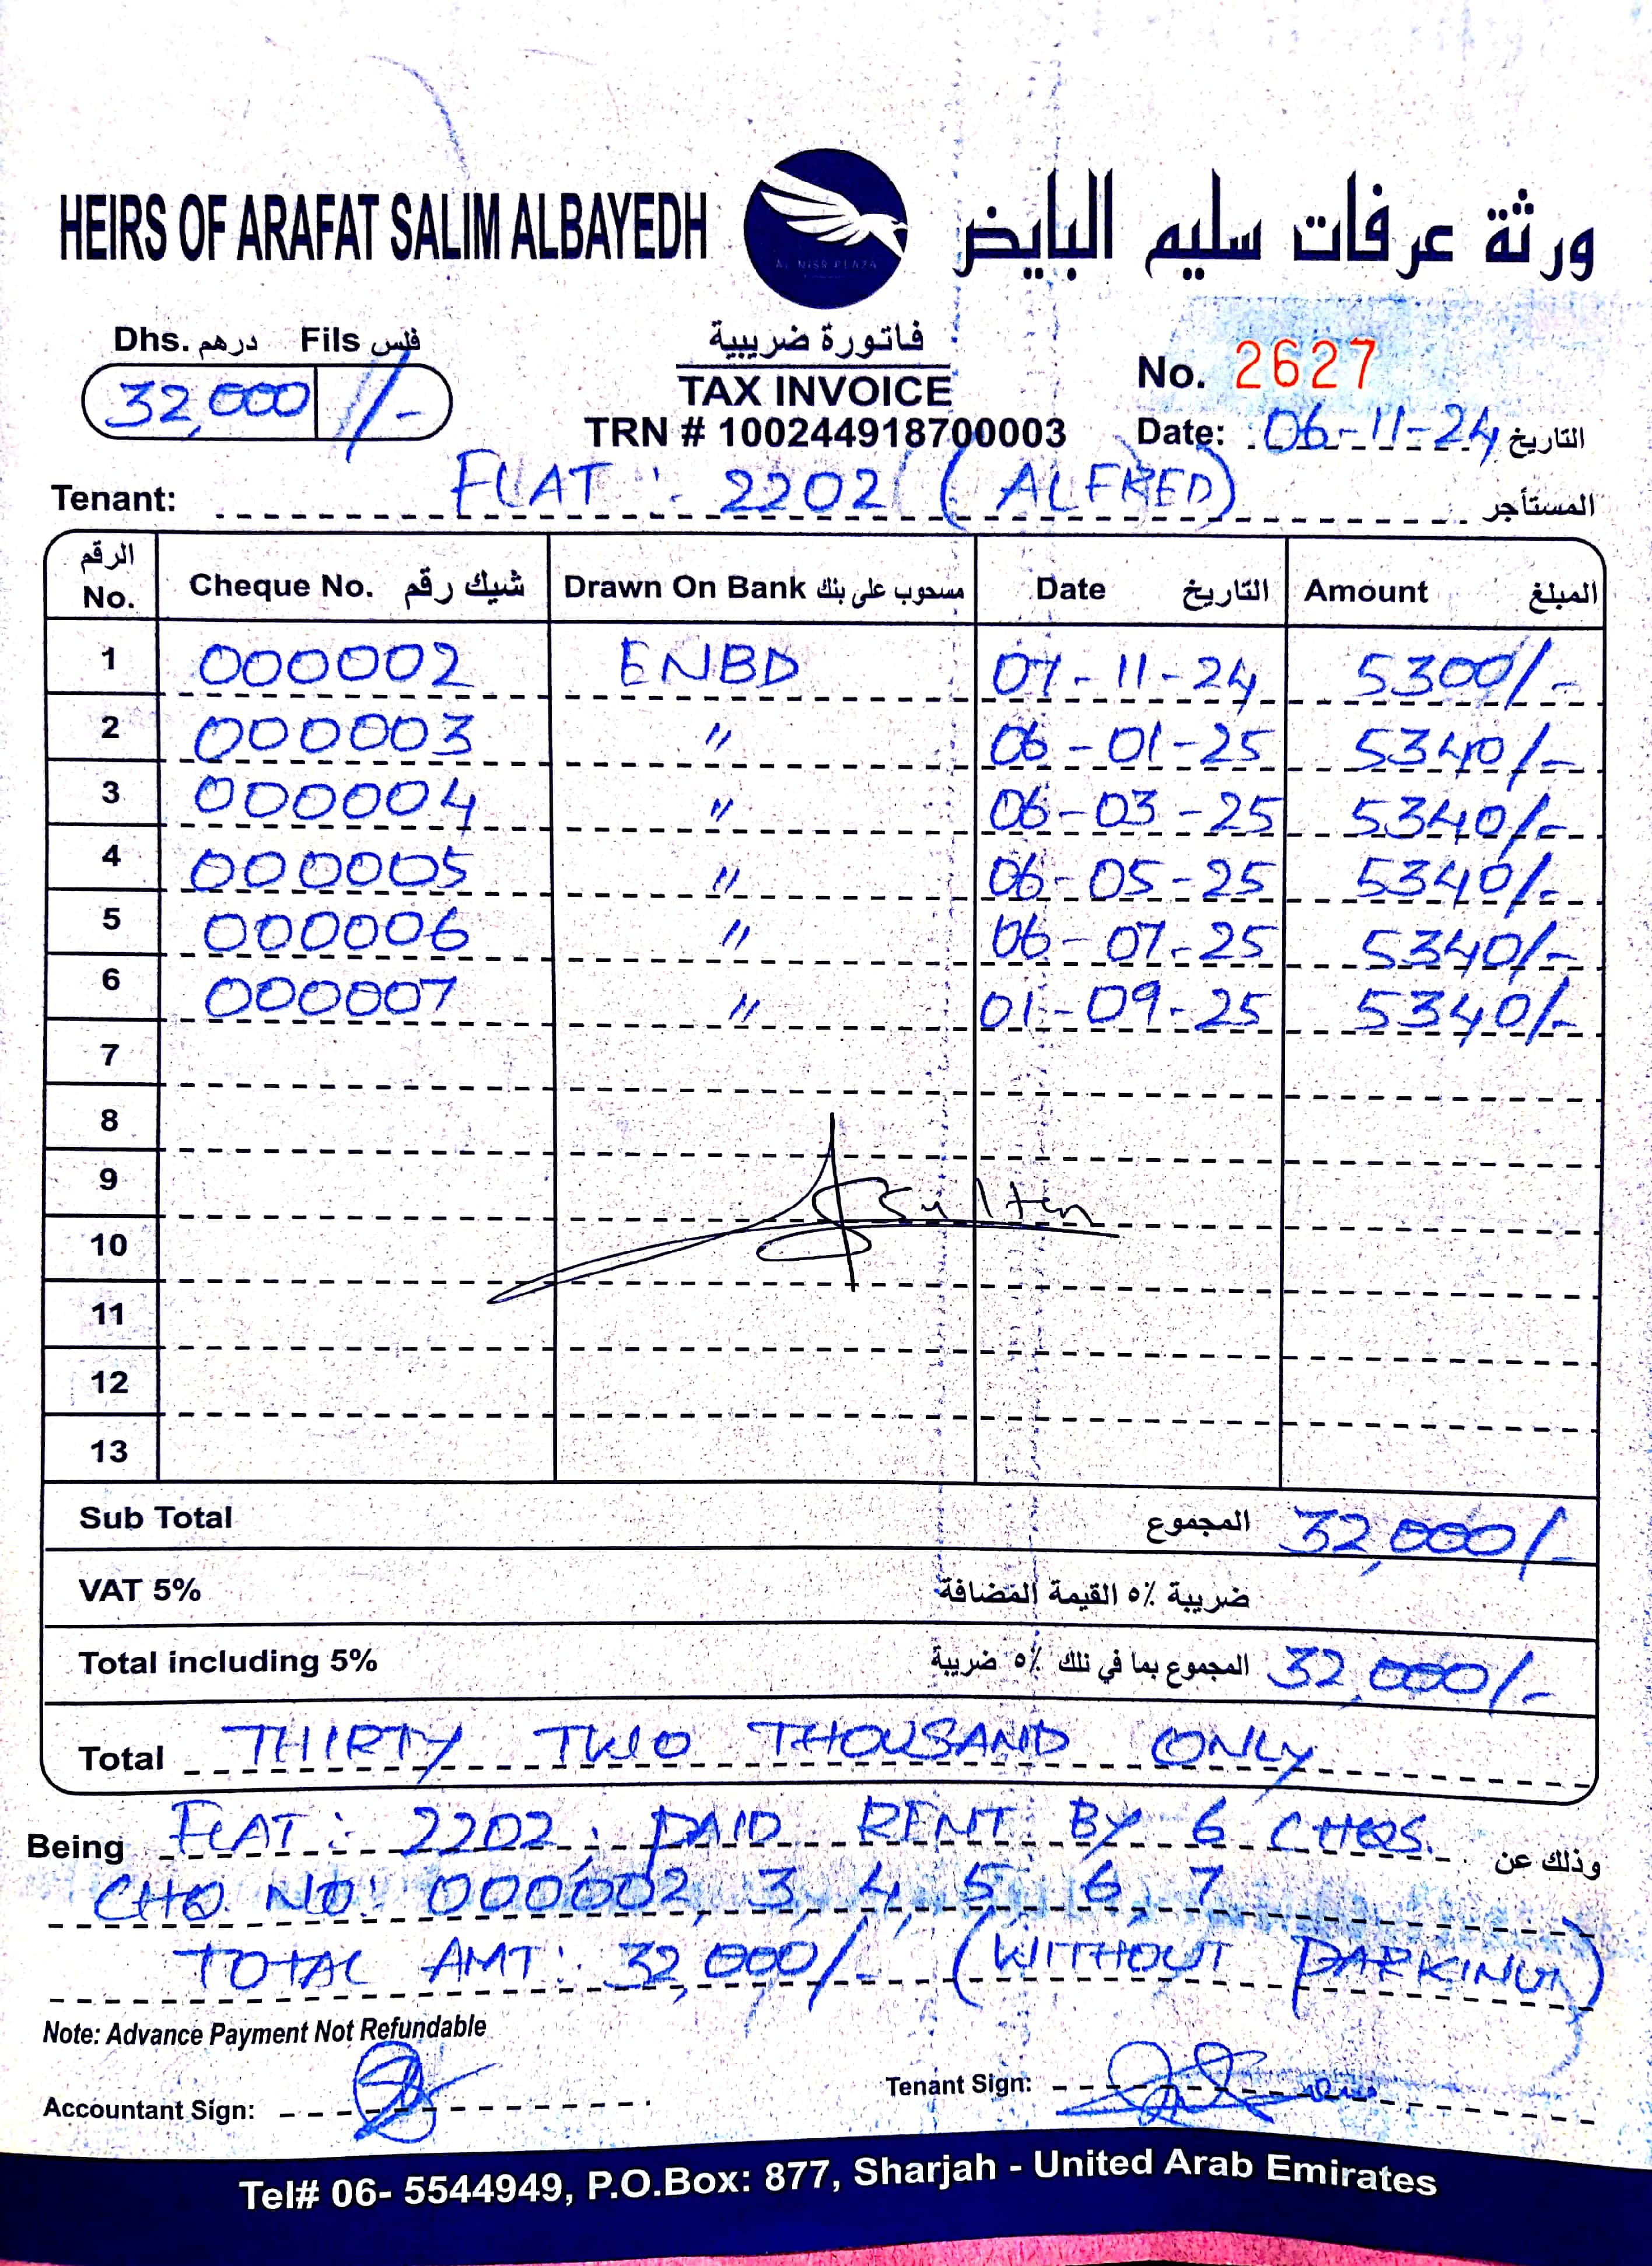 HEIRS OF ARAFAT SALIM ALBAYEDH ورثة عرفات سليم البايض
AL NISR PLAZA
Dhs. درهم Fils فلس
32,000 /-
فاتورة ضريبية
TAX INVOICE
TRN # 100244918700003
No. 2627
Date: 06-11-24 التاريخ
Tenant: FLAT :- 2202 (ALFRED) المستأجر
الرقم No. Cheque No. شيك رقم Drawn On Bank مسحوب على بنك Date التاريخ Amount المبلغ
1 000002 ENBD 07-11-24 5300/-
2 000003 " 06-01-25 5340/-
3 000004 " 06-03-25 5340/-
4 000005 " 06-05-25 5340/-
5 000006 " 06-07-25 5340/-
6 000007 " 01-09-25 5340/-
7
8
9
10
11
12
13
Sub Total المجموع 32,000/-
VAT 5% ضريبة ٪٥ القيمة المضافة
Total including 5% المجموع بما في تلك ٪٥ ضريبة 32,000/-
Total THIRTY TWO THOUSAND ONLY
Being FLAT :- 2202, PAID RENT BY 6 CHQS. وذلك عن
CHQ. NO: 000002, 3, 4, 5, 6, 7
TOTAL AMT: 32,000/- (WITHOUT PARKING)
Note: Advance Payment Not Refundable
Accountant Sign: Tenant Sign:
Tel# 06- 5544949, P.O.Box: 877, Sharjah - United Arab Emirates